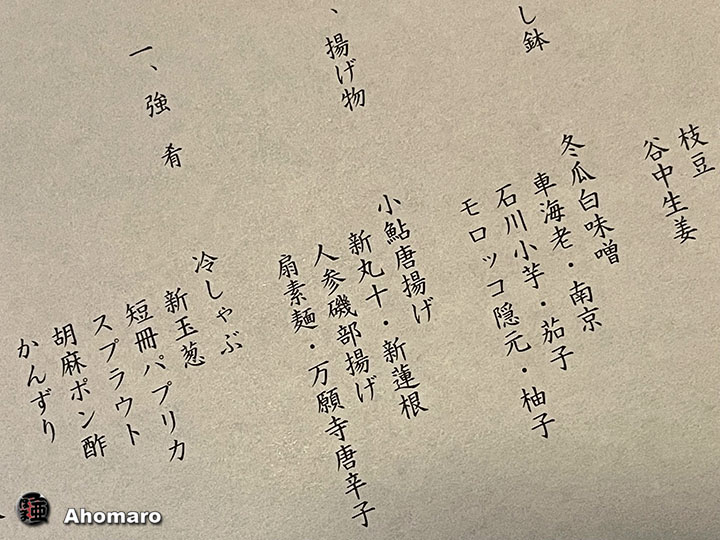 枝豆
谷中生姜
し鉢
冬瓜白味噌
車海老・南京
石川小芋・茄子
モロッコ隠元・柚子
、揚げ物
小鮎唐揚げ
新丸十・新蓮根
人参磯部揚げ
扇素麺・万願寺唐辛子
一、強肴
冷しゃぶ
新玉葱
短冊パプリカ
スプラウト
胡麻ポン酢
かんずり
Ahomaro